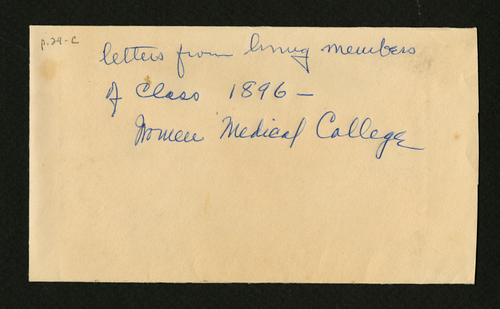 p.29-C
letters from living members
of Class 1896 —
Women Medical College